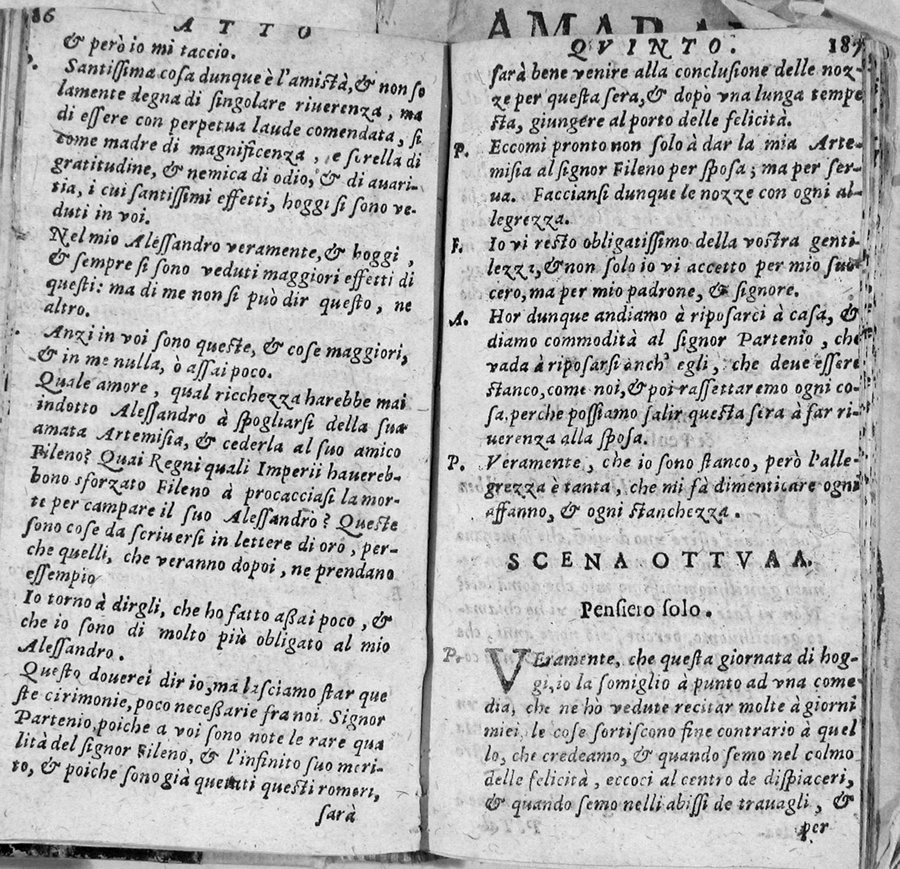 86 ATTO
& però io mi taccio.
Santissima cosa dunque è l'amistà, & non so
lamente degna di singolare riuerenza, ma
di essere con perpetua laude comendata, si
come madre di magnificenza, e sorella di
gratitudine, & nemica di odio, & di auari-
tia, i cui santissimi effetti, hoggi si sono ve-
duti in voi.
Nel mio Alessandro veramente, & hoggi,
& sempre si sono veduti maggiori effetti di
questi: ma di me non si può dir questo, ne
altro.
Anzi in voi sono queste, & cose maggiori,
& in me nulla, ò assai poco.
Quale amore, qual ricchezza harebbe mai
indotto Alessandro à spogliarsi della sua
amata Artemisia, & cederla al suo amico
Fileno? Quai Regni quali Imperii hauereb-
bono sforzato Fileno à procacciasi la mor-
te per campare il suo Alessandro? Queste
sono cose da scriuersi in lettere di oro, per-
che quelli, che veranno dopoi, ne prendano
essempio
Io torno à dirgli, che ho fatto assai poco, &
che io sono di molto più obligato al mio
Alessandro.
Questo douerei dir io, ma lasciamo star que
ste cirimonie, poco necessarie fra noi. Signor
Partenio, poiche a voi sono note le rare qua
lità del signor Fileno, & l'infinito suo meri-
to, & poiche sono già quetati questi romori,
sarà
AMARA
QVINTO. 187
sarà bene venire alla conclusione delle noz-
ze per questa sera, & dopò vna lunga tempe
sta, giungere al porto delle felicità.
P. Eccomi pronto non solo à dar la mia Arte-
misia al signor Fileno per sposa; ma per ser-
ua. Faccianſi dunque le nozze con ogni al-
legrezza.
F. Io vi resto obligatissimo della vostra genti-
lezza, & non solo io vi accetto per mio suo
cero, ma per mio padrone, & signore.
A. Hor dunque andiamo à riposarci à casa, &
diamo commodità al signor Partenio, che
vada à riposarsi anch' egli, che deue essere
stanco, come noi, & poi rassettaremo ogni co-
sa, perche possiamo salir questa sera à far ri-
uerenza alla sposa.
P. Veramente, che io sono stanco, però l'alle-
grezza è tanta, che mi fà dimenticare ogni
affanno, & ogni stanchezza.
SCENA OTTVAA.
Pensiero solo.
P. VEramente, che questa giornata di hog-
gi, io la somiglio à punto ad vna come-
dia, che ne ho vedute recitar molte à giorni
miei, le cose sortiscono fine contrario à quel
lo, che credeamo, & quando semo nel colmo
delle felicità, eccoci al centro de dispiaceri,
& quando semo nelli abissi de trauagli, &
per